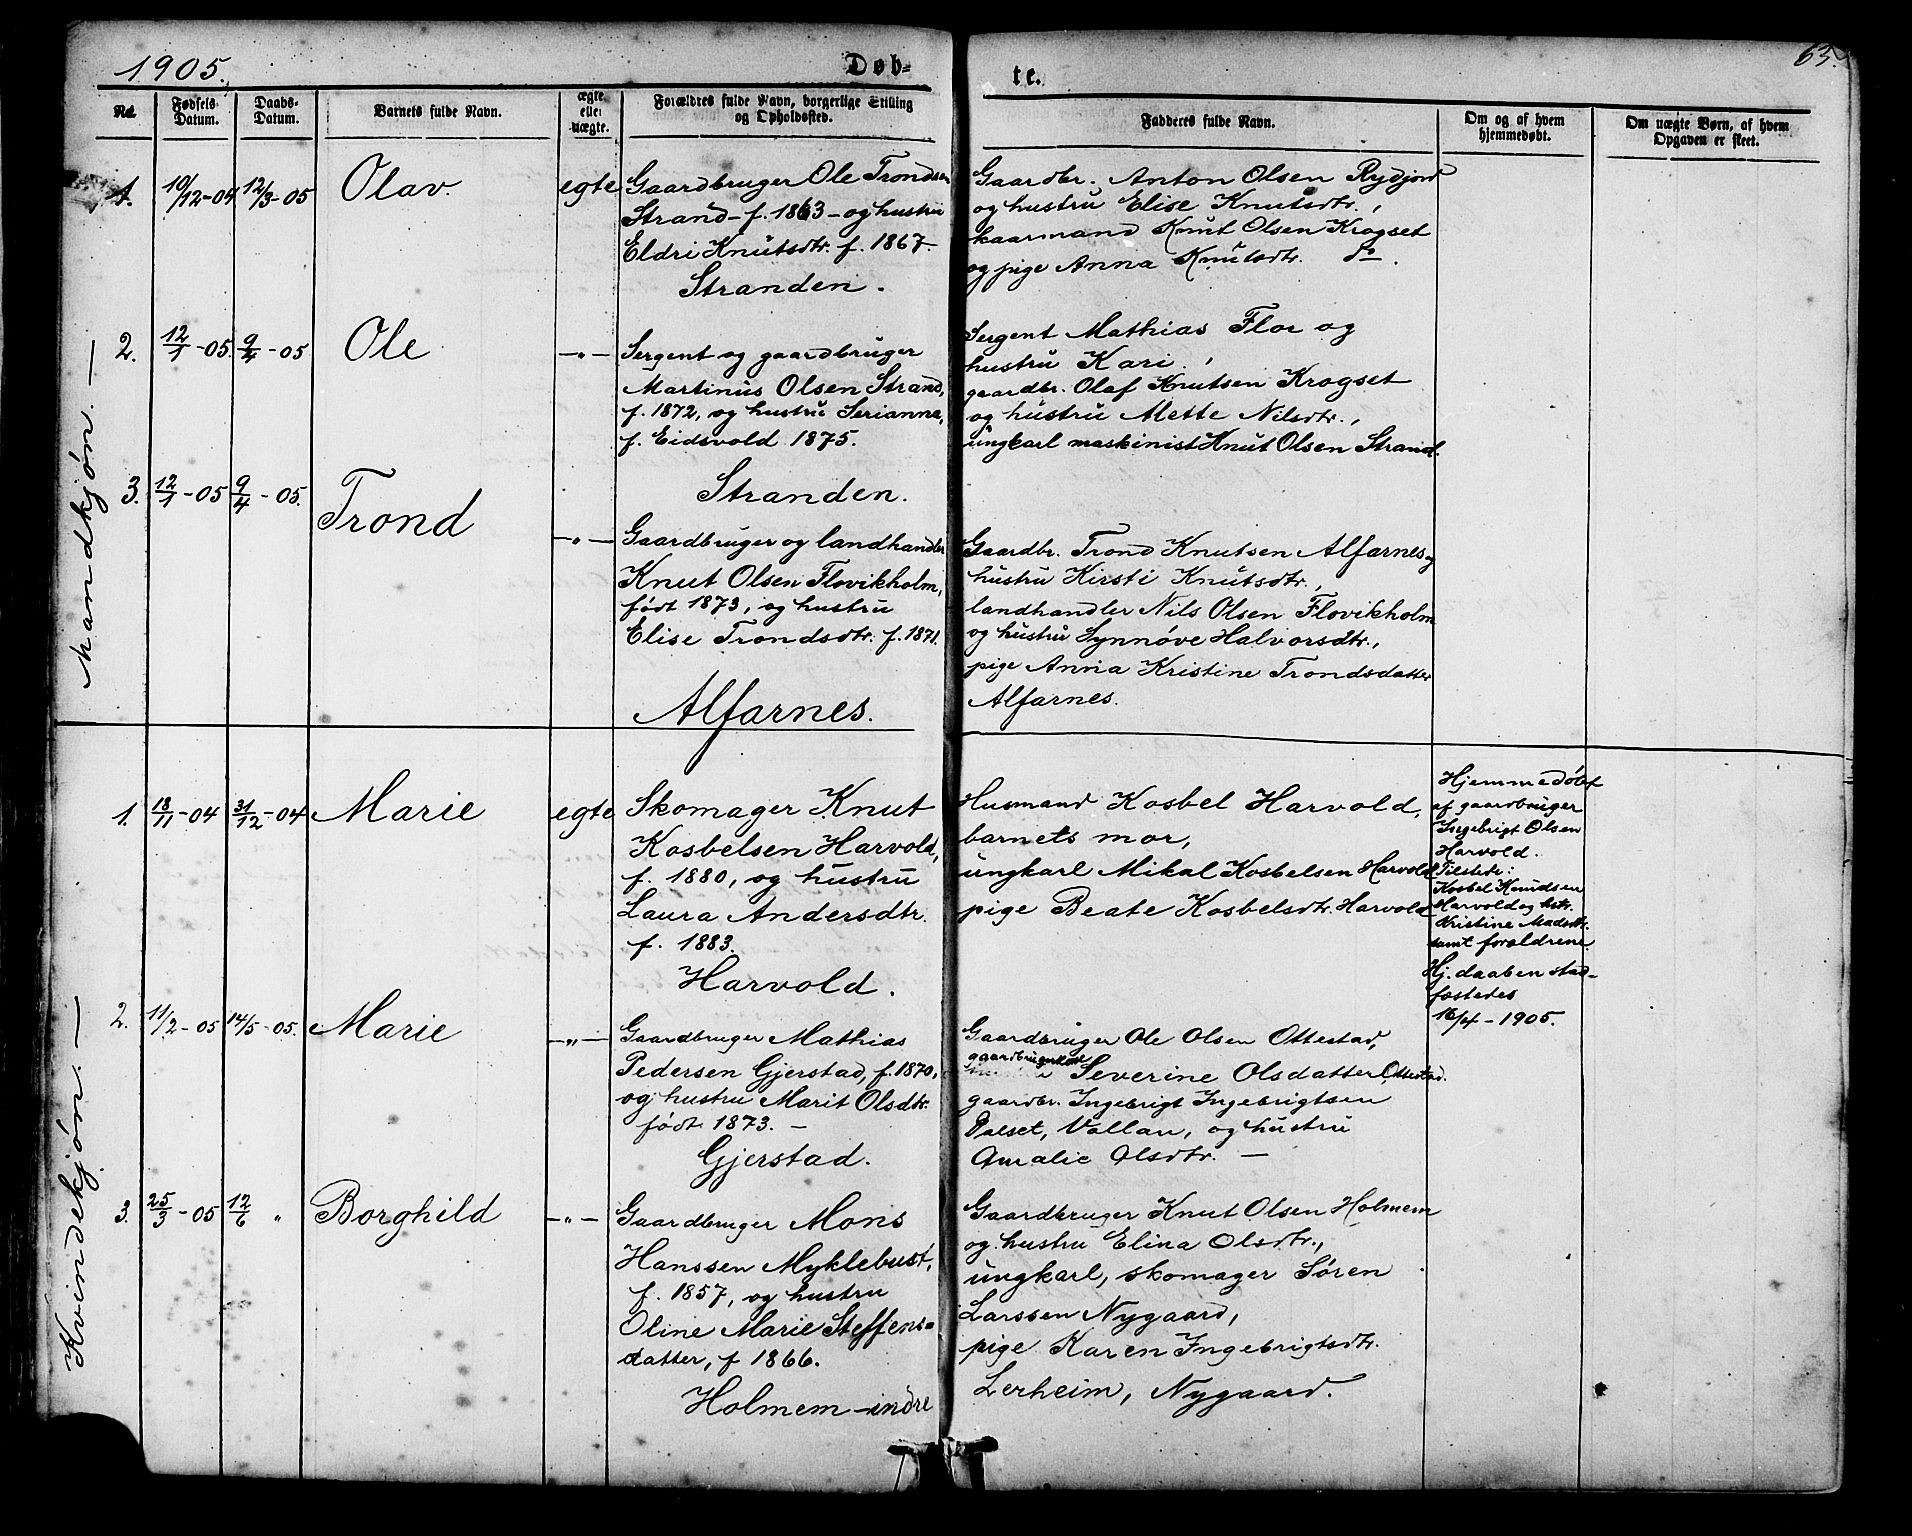 1905.
Døb-
te.
63.
No.
Fødsels
Datum.
Daabs-
Datum.
Barnets fulde Navn.
ægte
eller
uægte.
Forældres fulde Navn, borgerlige Stilling
og Opholdssted.
Fadderes fulde Navn.
Om og af hvem
hjemmedøbt.
Om uægte Børn, af hvem
Opgaven er skeet.
Mandkjøn. —
1.
10/12-04
12/3-05
Olav
egte
Gaardbruger Ole Trondsen
Strand - f. 1863 - og hustru
Eldri Knutsdtr. f. 1867.
Stranden.
Gaardbr. Anton Olsen Rydjord
og hustru Elise Knutsdtr.,
kaarmand Knut Olsen Krogset
og pige Anna Knutsdtr. do.
2.
12/1-05
9/4-05
Ole
—"—
Sergent og gaardbruger
Martinus Olsen Strand,
f. 1872, og hustru Serianna,
f. Eidsvold 1875.
Stranden.
Sergent Mathias Flor og
hustru Kari,
gaardbr. Olaf Knutsen Krogset
og hustru Mette Nilsdtr.,
ungkarl maskinist Knut Olsen Strand.
3.
12/1-05
9/4-05.
Trond
—"—
Gaardbruger og landhandler
Knut Olsen Flovikholm,
født 1873, og hustru
Elise Trondsdtr. f. 1871.
Alfarnes.
Gaardbr. Trond Knutsen Alfarnes og
hustru Kirsti Knutsdtr.,
landhandler Nils Olsen Flovikholm
og hustru Synnøve Halvorsdtr.,
pige Anna Kristine Trondsdatter
Alfarnes.
Kvindekjøn. —
1.
18/11-04
31/12-04
Marie
egte
Skomager Knut
Kosbelsen Harvold,
f. 1880, og hustru
Laura Andersdtr.
f. 1883.
Harvold.
Husmand Kosbel Harvold,
barnets mor,
ungkarl Mikal Kosbelsen Harvold
pige Beate Kosbelsdtr. Harvold
Hjemmedøbt
af gaardbruger
Ingebrigt Olsen
Harvold.
Tilstede:
Kosbel Knudsen
Harvold og hstr.
Kristine Madsdtr.
samt forældrene.
Hj. daaben stad-
fæstedes
16/4-1905.
2.
11/2-05
14/5-05.
Marie
—"—
Gaardbruger Mathias
Pedersen Gjerstad, f. 1870,
og hustru Marit Olsdtr.
født 1873. —
Gjerstad.
Gaardbruger Ole Olsen Ottestad,
Severine Olsdatter Ottestad.
gaardbr. Ingebrigt Ingebrigtsen
Dalset, Vollan, og hustru
Amalie Olsdtr. —
3.
25/3-05
12/6 "
Borghild
—"—
Gaardbruger Mons
Hanssen Myklebust,
f. 1857, og hustru
Oline Marie Steffens-
datter, f 1866.
Holmem-indre
Gaardbruger Knut Olsen Holmem
og hustru Elina Olsdtr.,
ungkarl, skomager Søren
Larssen Nygaard,
pige Karen Ingebrigtsdtr.
Lerheim, Nygaard.